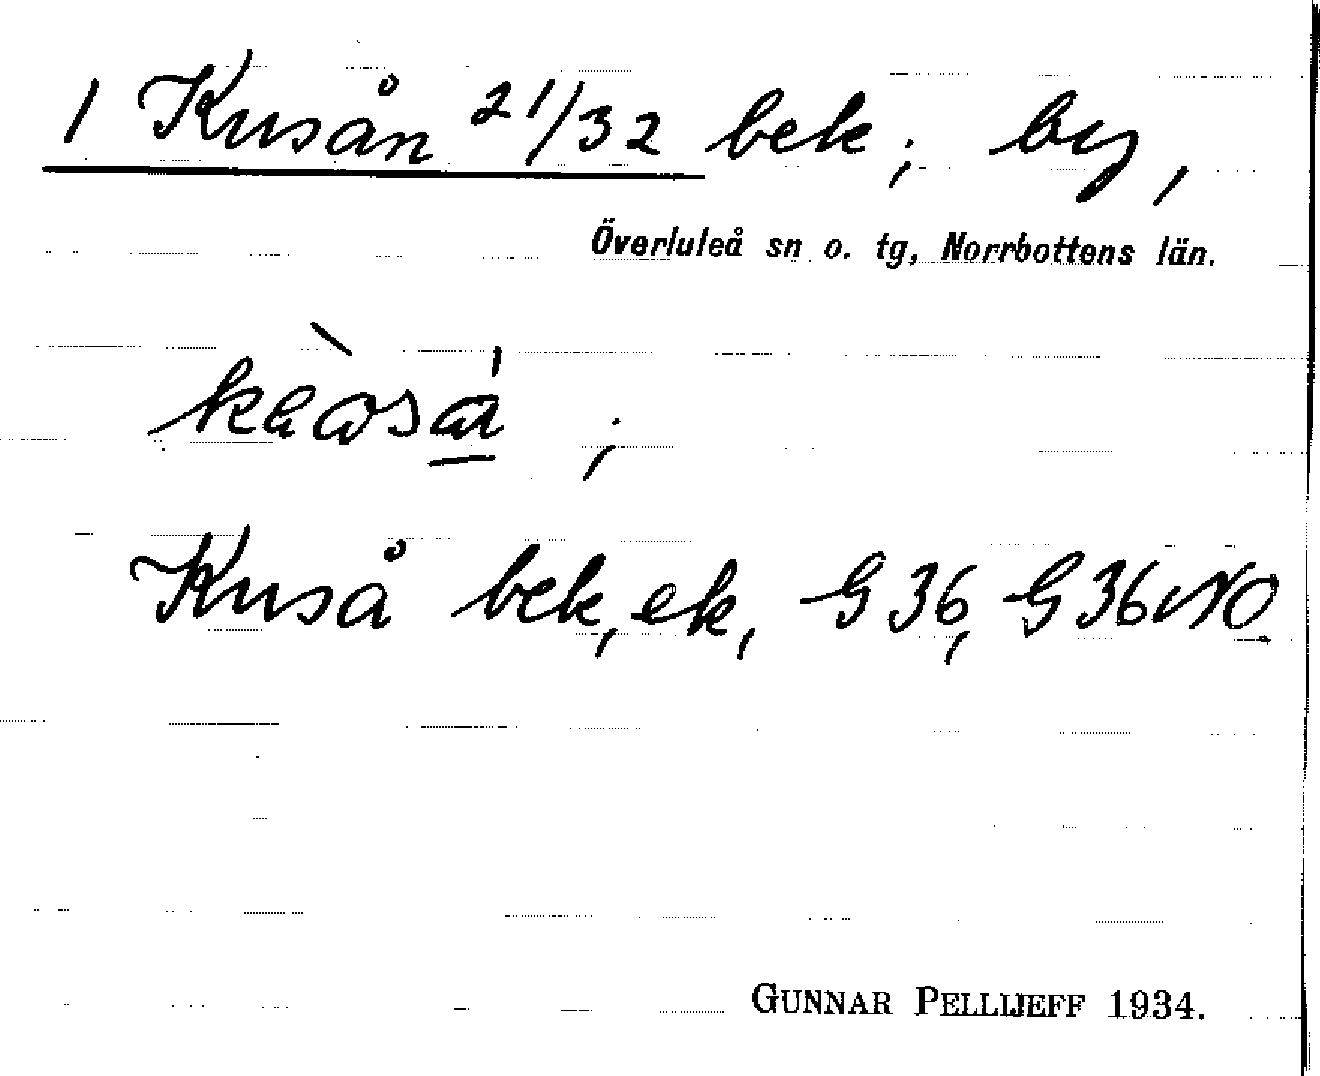 1 Kusån 21/32 bek; by,
Överluleå sn o. tg, Norrbottens län.
Kuså bek, ek, G36, G36NO
GUNNAR PELLIJEFF 1934.